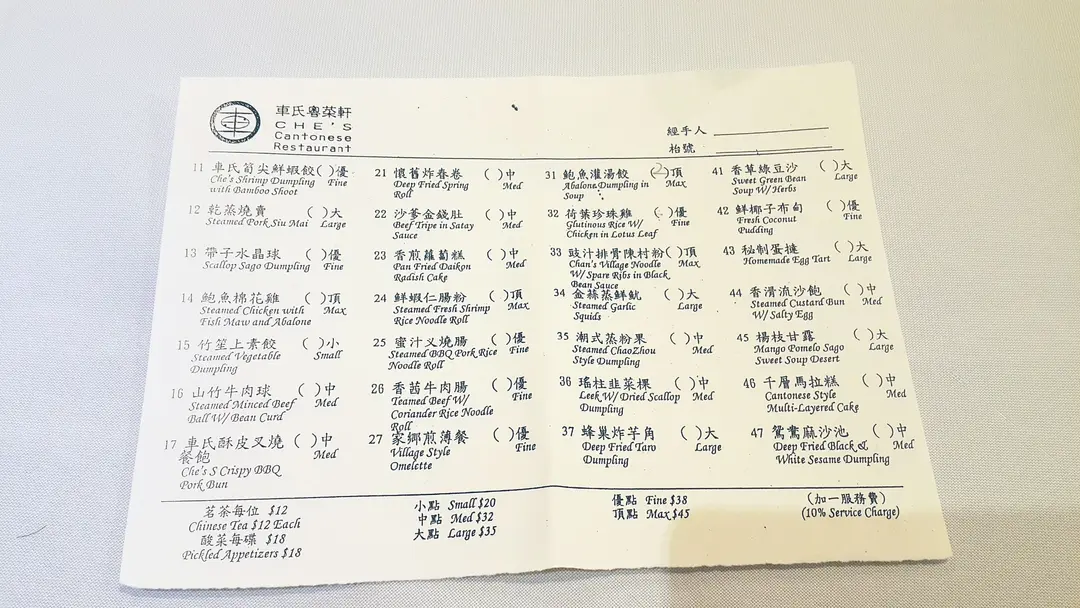 車氏粵菜軒
CHE'S
Cantonese
Restaurant
經手人
枱號
11 車氏筍尖鮮蝦餃( )優
Che's Shrimp Dumpling Fine
with Bamboo Shoot
12 乾蒸燒賣 ( )大
Steamed Pork Siu Mai Large
13 帶子水晶球 ( )優
Scallop Sago Dumpling Fine
14 鮑魚棉花雞 ( )頂
Steamed Chicken with Max
Fish Maw and Abalone
15 竹笙上素餃 ( )小
Steamed Vegetable Small
Dumpling
16 山竹牛肉球 ( )中
Steamed Minced Beef Med
Ball W/ Bean Curd
17 車氏酥皮叉燒 ( )中
餐飽 Med
Che's S Crispy BBQ
Pork Bun
21 懷舊炸春卷 ( )中
Deep Fried Spring Med
Roll
22 沙爹金錢肚 ( )中
Beef Tripe in Satay Med
Sauce
23 香煎蘿蔔糕 ( )中
Pan Fried Daikon Med
Radish Cake
24 鮮蝦仁腸粉 ( )頂
Steamed Fresh Shrimp Max
Rice Noodle Roll
25 蜜汁叉燒腸 ( )優
Steamed BBQ Pork Rice Fine
Noodle Roll
26 香茜牛肉腸 ( )優
Teamed Beef W/ Fine
Coriander Rice Noodle
Roll
27 家鄉煎薄餐 ( )優
Village Style Fine
Omelette
31 鮑魚灌湯餃 (2)頂
Abalone Dumpling in Max
Soup
32 荷葉珍珠雞 ( )優
Glutinous Rice W/ Fine
Chicken in Lotus Leaf
33 豉汁排骨陳村粉( )頂
Chan's Village Noodle Max
W/ Spare Ribs in Black
Bean Sauce
34 金蒜蒸鮮魷 ( )大
Steamed Garlic Large
Squids
35 潮式蒸粉果 ( )中
Steamed ChaoZhou Med
Style Dumpling
36 瑤柱韭菜粿 ( )中
Leek W/ Dried Scallop Med
Dumpling
37 蜂巢炸芋角 ( )大
Deep Fried Taro Large
Dumpling
41 香草綠豆沙 ( )大
Sweet Green Bean Large
Soup W/ Herbs
42 鮮椰子布甸 ( )優
Fresh Coconut Fine
Pudding
43 秘制蛋撻 ( )大
Homemade Egg Tart Large
44 香滑流沙飽 ( )中
Steamed Custard Bun Med
W/ Salty Egg
45 楊枝甘露 ( )大
Mango Pomelo Sago Large
Sweet Soup Desert
46 千層馬拉糕 ( )中
Cantonese Style Med
Multi-Layered Cake
47 鴛鴦麻沙池 ( )中
Deep Fried Black & Med
White Sesame Dumpling
茗茶每位 $12
Chinese Tea $12 Each
酸菜每碟 $18
Pickled Appetizers $18
小點 Small $20
中點 Med $32
大點 Large $35
優點 Fine $38
頂點 Max $45
(加一服務費)
(10% Service Charge)